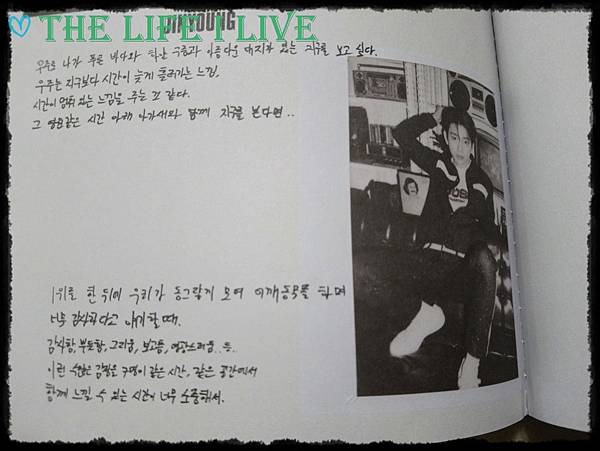 THE LIFE I LIVE
JINYOUNG
우주로 나가 푸른 바다와 하얀 구름과 아름다운 대지가 있는 지구를 보고 싶다.
우주는 지구보다 시간이 늦게 흘러가는 느낌.
시간이 멈춰 있는 느낌을 주는 것 같다.
그 영원같은 시간 아래 아가새와 함께 지구를 본다면..
1위를 한 뒤에 우리가 동그랗게 모여 어깨동무를 하며
너무 감사하다고 얘기할 때.
감사함, 뿌듯함, 그리움, 보고픔, 영광스러움..등.
이런 수많은 감정을 7명이 같은 시간, 같은 공간에서
함께 느낄 수 있는 시간이 너무 소중해서.